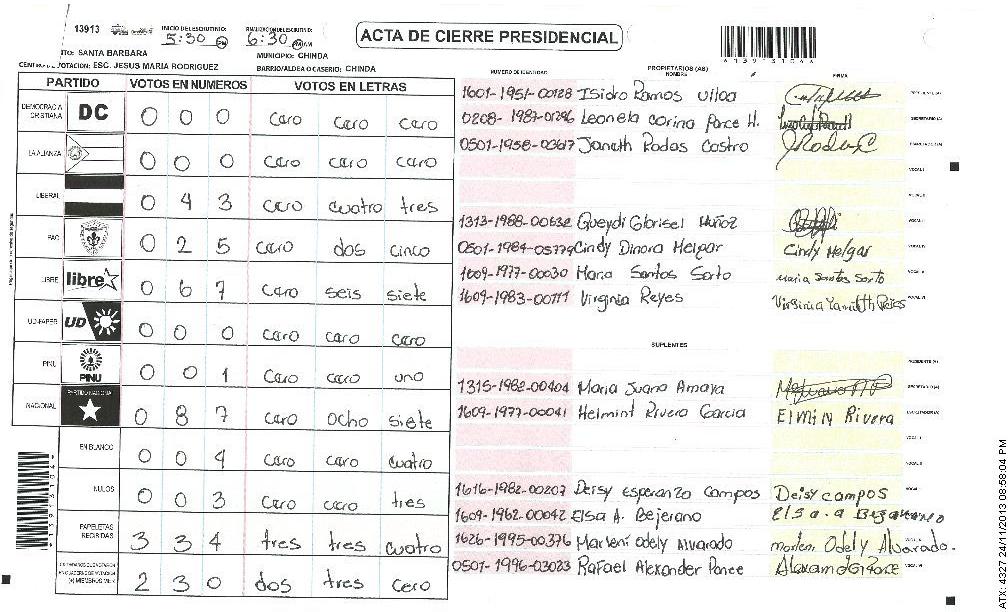 13913 INICIO DEL ESCRUTINIO: 5:30 PM FINALIZACION DEL ESCRUTINIO: 6:30 PM AM
ACTA DE CIERRE PRESIDENCIAL
TO: SANTA BARBARA MUNICIPIO: CHINDA
VOTACION: ESC. JESUS MARIA RODRIGUEZ BARRIO/ALDEA O CASERIO: CHINDA
PARTIDO VOTOS EN NUMEROS VOTOS EN LETRAS
DEMOCRACIA CRISTIANA DC 0 0 0 cero cero cero
LA ALIANZA 0 0 0 cero cero cero
LIBERAL 0 4 3 cero cuatro tres
PAC 0 2 5 cero dos cinco
LIBRE libre 0 6 7 cero seis siete
UD-FAPER UD 0 0 0 cero cero cero
PINU PINU 0 0 1 cero cero uno
NACIONAL PARTIDO NACIONAL 0 8 7 cero ocho siete
EN BLANCO 0 0 4 cero cero cuatro
NULOS 0 0 3 cero cero tres
PAPELETAS RECIBIDAS 3 3 4 tres tres cuatro
2 3 0 dos tres cero
NUMERO DE IDENTIDAD PROPIETARIOS (AS) NOMBRE FIRMA
1601-1951-00128 Isidro Ramos Ulloa
0208-1987-01296 Leonela Corina Ponce H.
0501-1958-03617 Janeth Rodas Castro JRodasC
1313-1988-00632 Queydi Glorisel Muñoz
0501-1984-05779 Cindy Dinora Helgar Cindy Helgar
1609-1977-00030 Maria Santos Sorto maria Santos Sorto
1609-1983-00111 Virginia Reyes Virginia Yamileth Reies
SUPLENTES
1315-1982-00404 Maria Juana Amaya
1609-1977-00041 Helmint Rivera Garcia Elmin Rivera
1616-1982-00207 Deisy Esperanza Campos Deisy campos
1609-1962-00042 Elsa A. Bejerano
1626-1995-00376 Marleni Odely Alvarado Marleni Odely Alvarado.
0501-1996-03023 Rafael Alexander Ponce Alexander Ponce
ATX: 4327 24/11/2013 08:58:04 PM